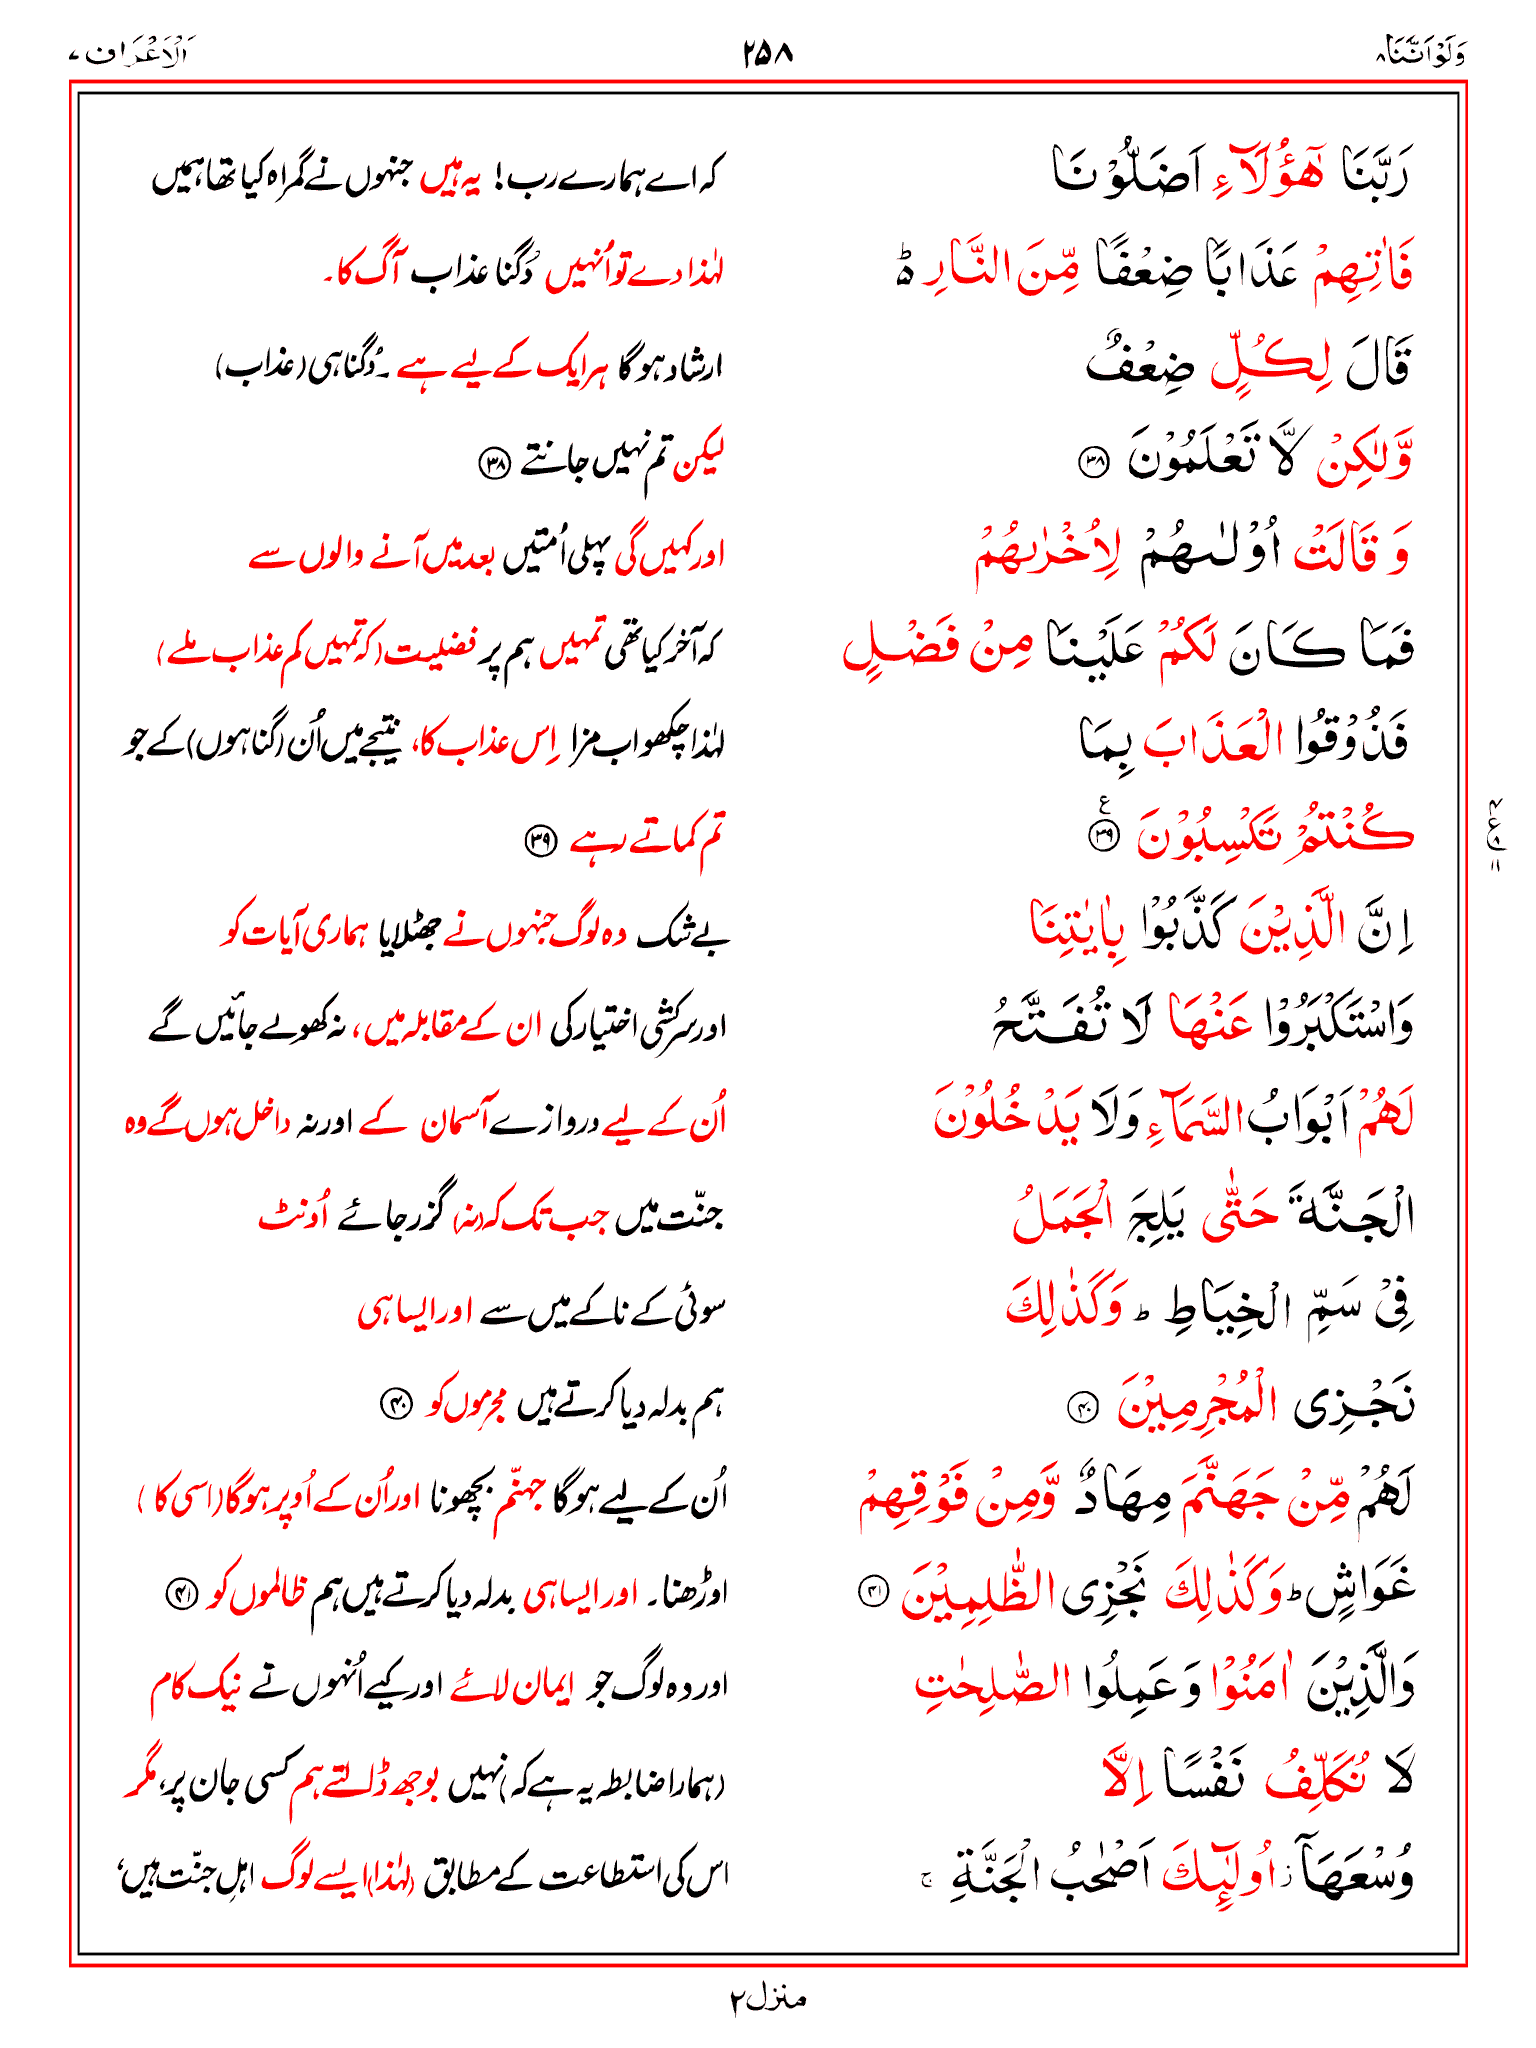 وَلَوْ اَنَّنَا ۸
۲۵۸
اَلْاَعْرَاف ۷
رَبَّنَا هٰٓؤُلَآءِ اَضَلُّوْنَا
کہ اے ہمارے رب! یہ ہیں جنہوں نے گمراہ کیا تھا ہمیں
فَاٰتِهِمْ عَذَابًا ضِعْفًا مِّنَ النَّارِ ؕ۬
لہٰذا دے تو اُنہیں دُگنا عذاب آگ کا۔
قَالَ لِكُلٍّ ضِعْفٌ
ارشاد ہوگا ہر ایک کے لیے ہے ۔دُگنا ہی (عذاب)
وَّلٰكِنْ لَّا تَعْلَمُوْنَ ۳۸
لیکن تم نہیں جانتے ۳۸
وَ قَالَتْ اُوْلٰىهُمْ لِاُخْرٰىهُمْ
اور کہیں گی پہلی اُمتیں بعد میں آنے والوں سے
فَمَا كَانَ لَكُمْ عَلَيْنَا مِنْ فَضْلٍ
کہ آخر کیا تھی تمہیں ہم پر فضلیت (کہ تمہیں کم عذاب ملے)
فَذُوْقُوا الْعَذَابَ بِمَا
لہٰذا چکھو اب مزا اِس عذاب کا، نتیجے میں اُن (گناہوں) کے جو
كُنْتُمْ تَكْسِبُوْنَ ۳۹ ع
تم کماتے رہے ۳۹
۴ ع ۱۱
اِنَّ الَّذِيْنَ كَذَّبُوْا بِاٰيٰتِنَا
بے شک وہ لوگ جنہوں نے جھٹلایا ہماری آیات کو
وَاسْتَكْبَرُوْا عَنْهَا لَا تُفَتَّحُ
اور سرکشی اختیار کی ان کے مقابلہ میں، نہ کھولے جائیں گے
لَهُمْ اَبْوَابُ السَّمَآءِ وَلَا يَدْخُلُوْنَ
اُن کے لیے دروازے آسمان کے اور نہ داخل ہوں گے وہ
الْجَنَّةَ حَتّٰى يَلِجَ الْجَمَلُ
جنّت میں جب تک کہ (نہ) گزر جائے اُونٹ
فِىْ سَمِّ الْخِيَاطِ ؕ وَكَذٰلِكَ
سوئی کے ناکے میں سے اور ایسا ہی
نَجْزِى الْمُجْرِمِيْنَ ۴۰
ہم بدلہ دیا کرتے ہیں مجرموں کو ۴۰
لَهُمْ مِّنْ جَهَنَّمَ مِهَادٌ وَّمِنْ فَوْقِهِمْ
اُن کے لیے ہوگا جہنّم بچھونا اور اُن کے اُوپر ہوگا (اسی کا )
غَوَاشٍ ؕ وَكَذٰلِكَ نَجْزِى الظّٰلِمِيْنَ ۴۱
اوڑھنا۔ اور ایسا ہی بدلہ دیا کرتے ہیں ہم ظالموں کو ۴۱
وَالَّذِيْنَ اٰمَنُوْا وَ عَمِلُوا الصّٰلِحٰتِ
اور وہ لوگ جو ایمان لائے اور کیے اُنہوں نے نیک کام
لَا نُكَلِّفُ نَفْسًا اِلَّا
(ہمارا ضابطہ یہ ہے کہ) نہیں بوجھ ڈالتے ہم کسی جان پر، مگر
وُسْعَهَاۤ ؗ اُولٰٓئِكَ اَصْحٰبُ الْجَنَّةِ ۚ
اس کی استطاعت کے مطابق (لہٰذا) ایسے لوگ اہلِ جنّت ہیں،
منزل ۲